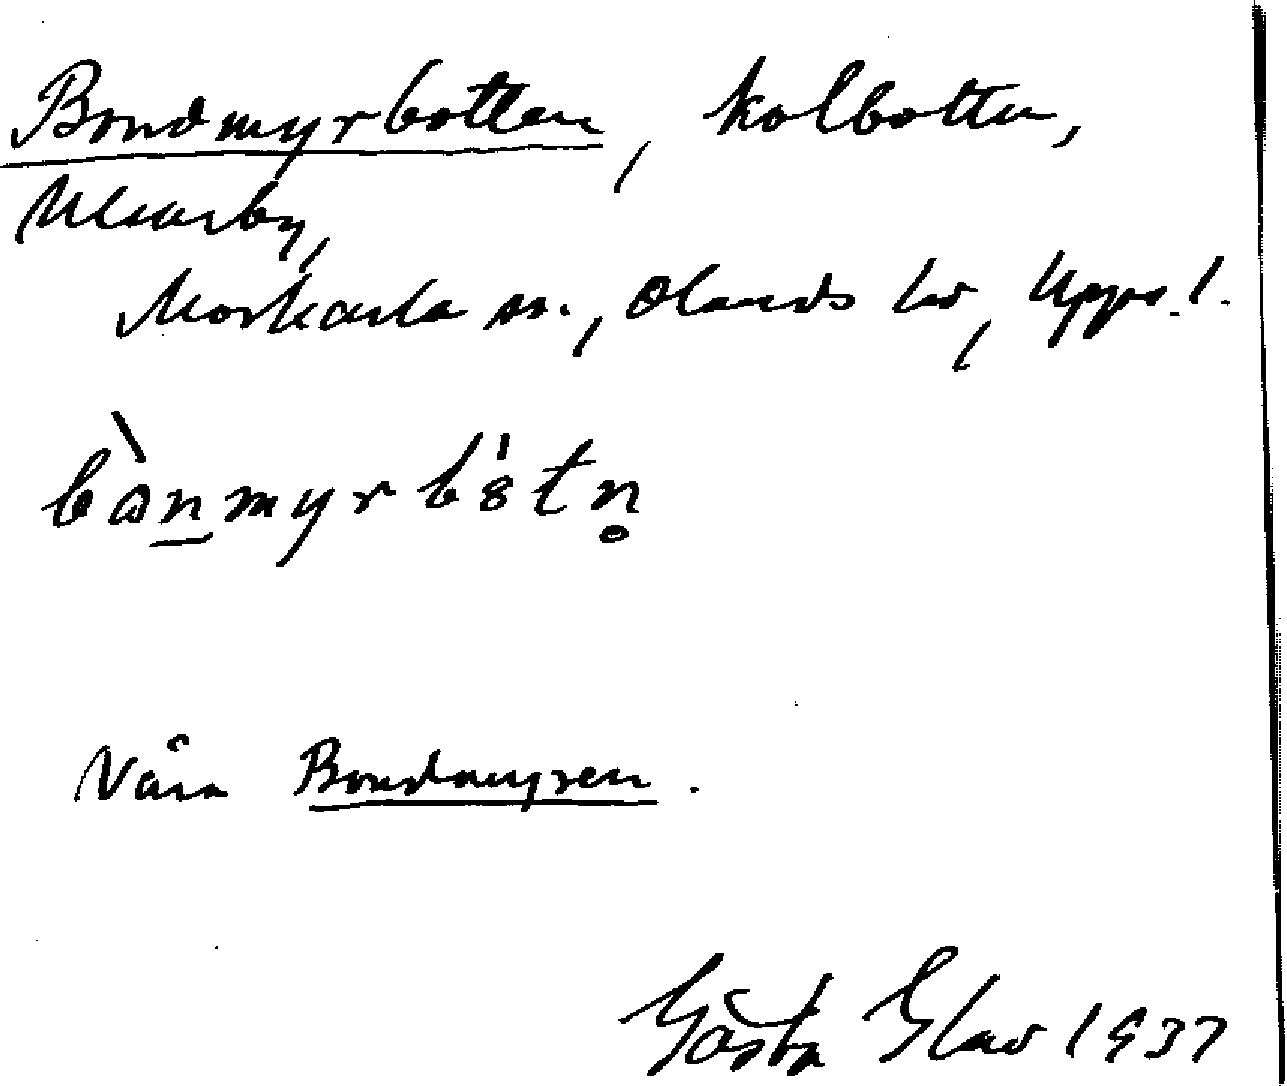 Bondmyrbotten, kolbotten,
Ulvarby,
Morkarla sn., Olands hd, Upps. l.
bònmyrb8́tn̥
Nära Bondmyren.
Gösta Elav 1937